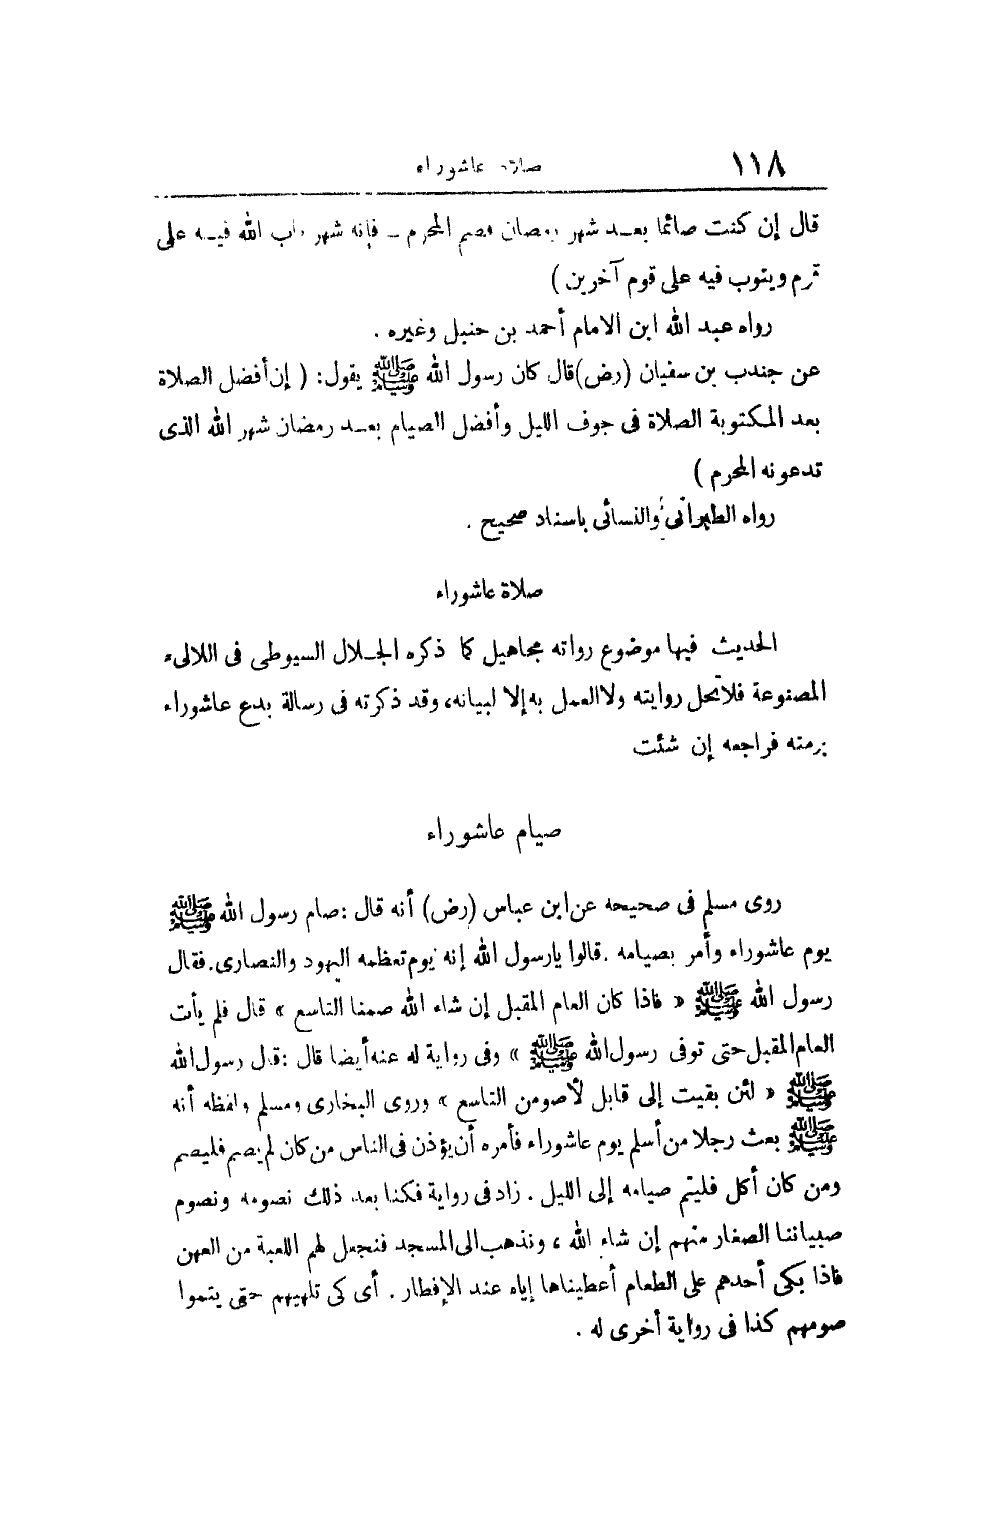 ١١٨ صلاة عاشوراء
قال إن كنت صائما بعد شهر رمضان فصم المحرم ـ فإنه شهر تاب الله فيه على
قوم ويتوب فيه على قوم آخرين )
رواه عبد الله ابن الامام أحمد بن حنبل وغيره .
عن جندب بن سفيان (رض) قال كان رسول الله ﷺ يقول: ( إن أفضل الصلاة
بعد المكتوبة الصلاة فى جوف الليل وأفضل الصيام بعد رمضان شهر الله الذى
تدعونه المحرم )
رواه الطبرانى والنسائى باسناد صحيح .
صلاة عاشوراء
الحديث فيها موضوع رواته مجاهيل كما ذكره الجلال السيوطى فى اللالىء
المصنوعة فلاتحل روايته ولا العمل به إلا لبيانه، وقد ذكرته فى رسالة بدع عاشوراء
برمته فراجعه إن شئت
صيام عاشوراء
روى مسلم فى صحيحه عن ابن عباس (رض) أنه قال : صام رسول الله ﷺ
يوم عاشوراء وأمر بصيامه . قالوا يارسول الله إنه يوم تعظمه اليهود والنصارى. فقال
رسول الله ﷺ « فاذا كان العام المقبل إن شاء الله صمنا التاسع » قال فلم يأت
العام المقبل حتى توفى رسول الله ﷺ » وفى رواية له عنه أيضا قال : قال رسول الله
ﷺ « لئن بقيت إلى قابل لأصومن التاسع » وروى البخارى ومسلم ولفظه أنه
ﷺ بعث رجلا من أسلم يوم عاشوراء فأمره أن يؤذن فى الناس من كان لم يصم فليصم
ومن كان أكل فليتم صيامه إلى الليل . زاد فى رواية فكنا بعد ذلك نصومه ونصوم
صبياننا الصغار منهم إن شاء الله ، ونذهب الى المسجد فنجعل لهم اللعبة من العهن
فاذا بكى أحدهم على الطعام أعطيناها إياه عند الإفطار . أى كى تلهيهم حتى يتموا
صومهم كذا فى رواية أخرى له .